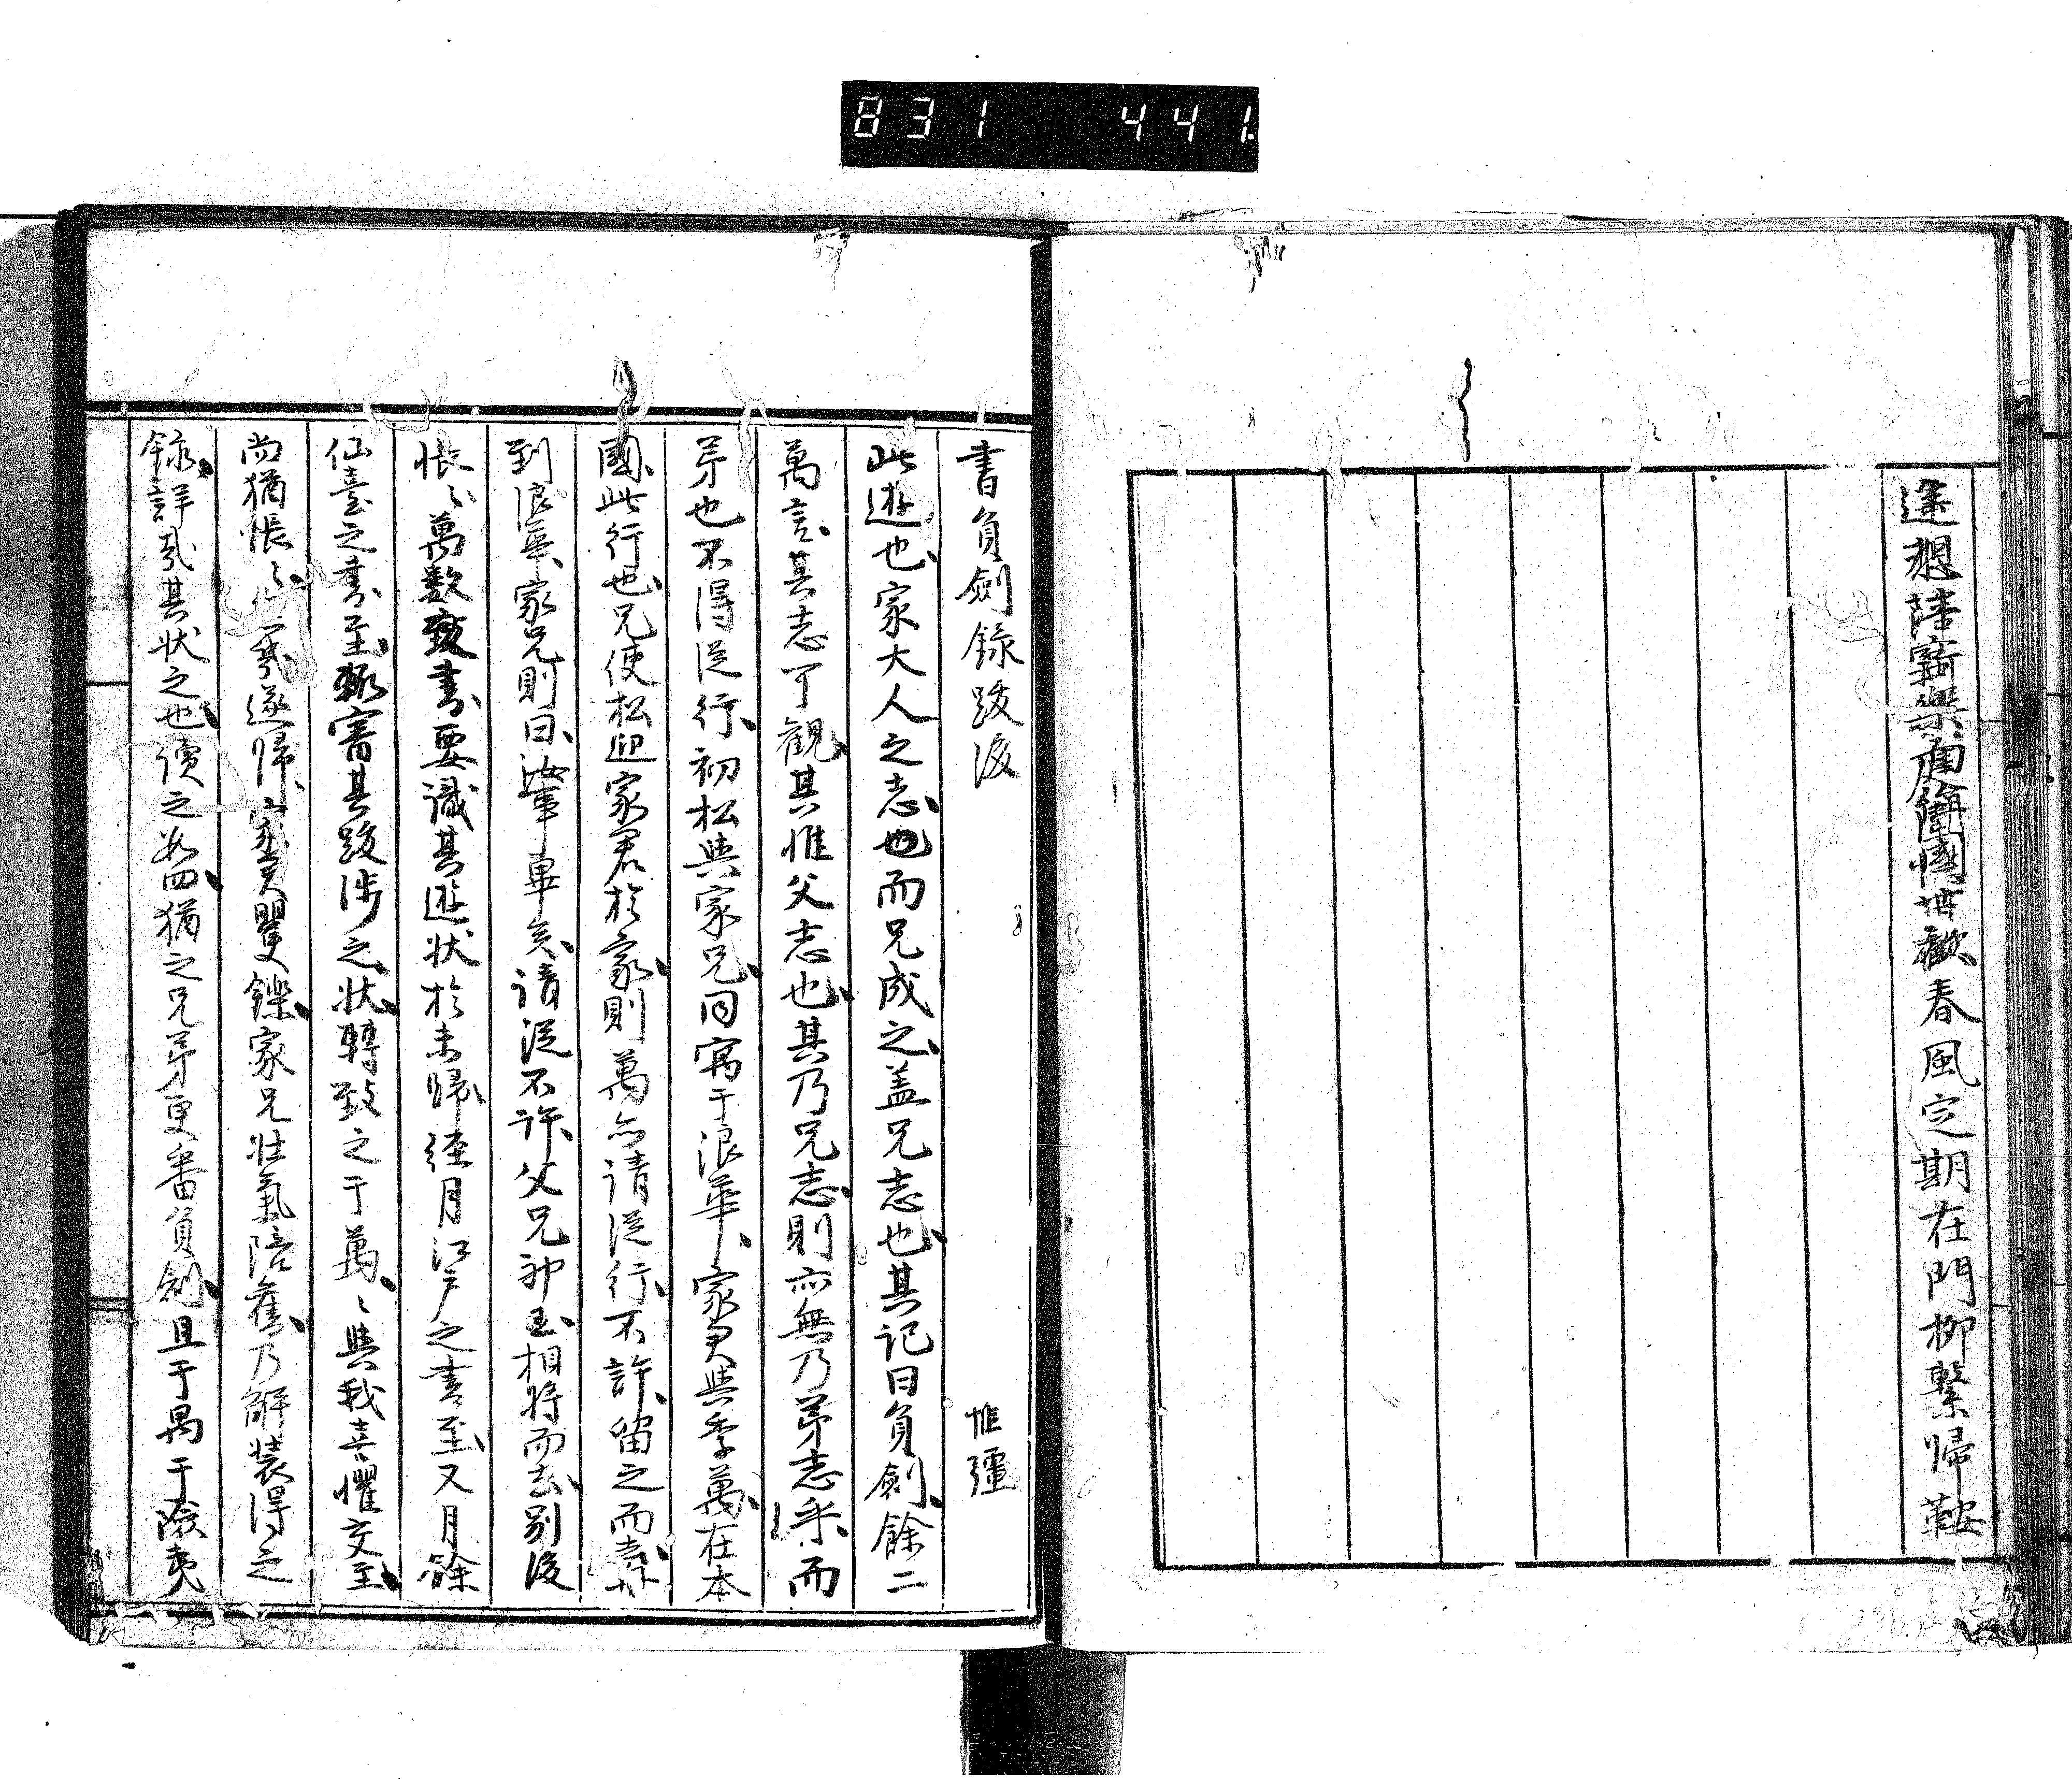 831 441
遙想陸寄樂有衞國世歡春風定期在門柳繫歸鞍
書負劍録跋後 惟彊
此遊也家大人之志也而兄成之蓋兄志也其記曰負劍餘二
萬言其志可觀其惟父志也其乃兄志則亦無乃芽志乎而
芽也不得從行初松與家兄同寓于浪華家尹與季萬在本
國此行也兄使松迎家君於家則萬亦請從行不許留之而
到浪華家兄則曰汝事畢矣請從不許父兄相將而去別後
悵〻萬數致書要識其遊状於未歸經月江戸之書至又月餘
仙臺之書至輙審其跋渉之状轉致之于萬〻與我喜懼交至
尚猶悵〻遂歸家矍鑠家兄壮氣陪舊乃解装得之
録詳哉其状之也讀之如四猶之兄芽更番負劍且于禺于險夷